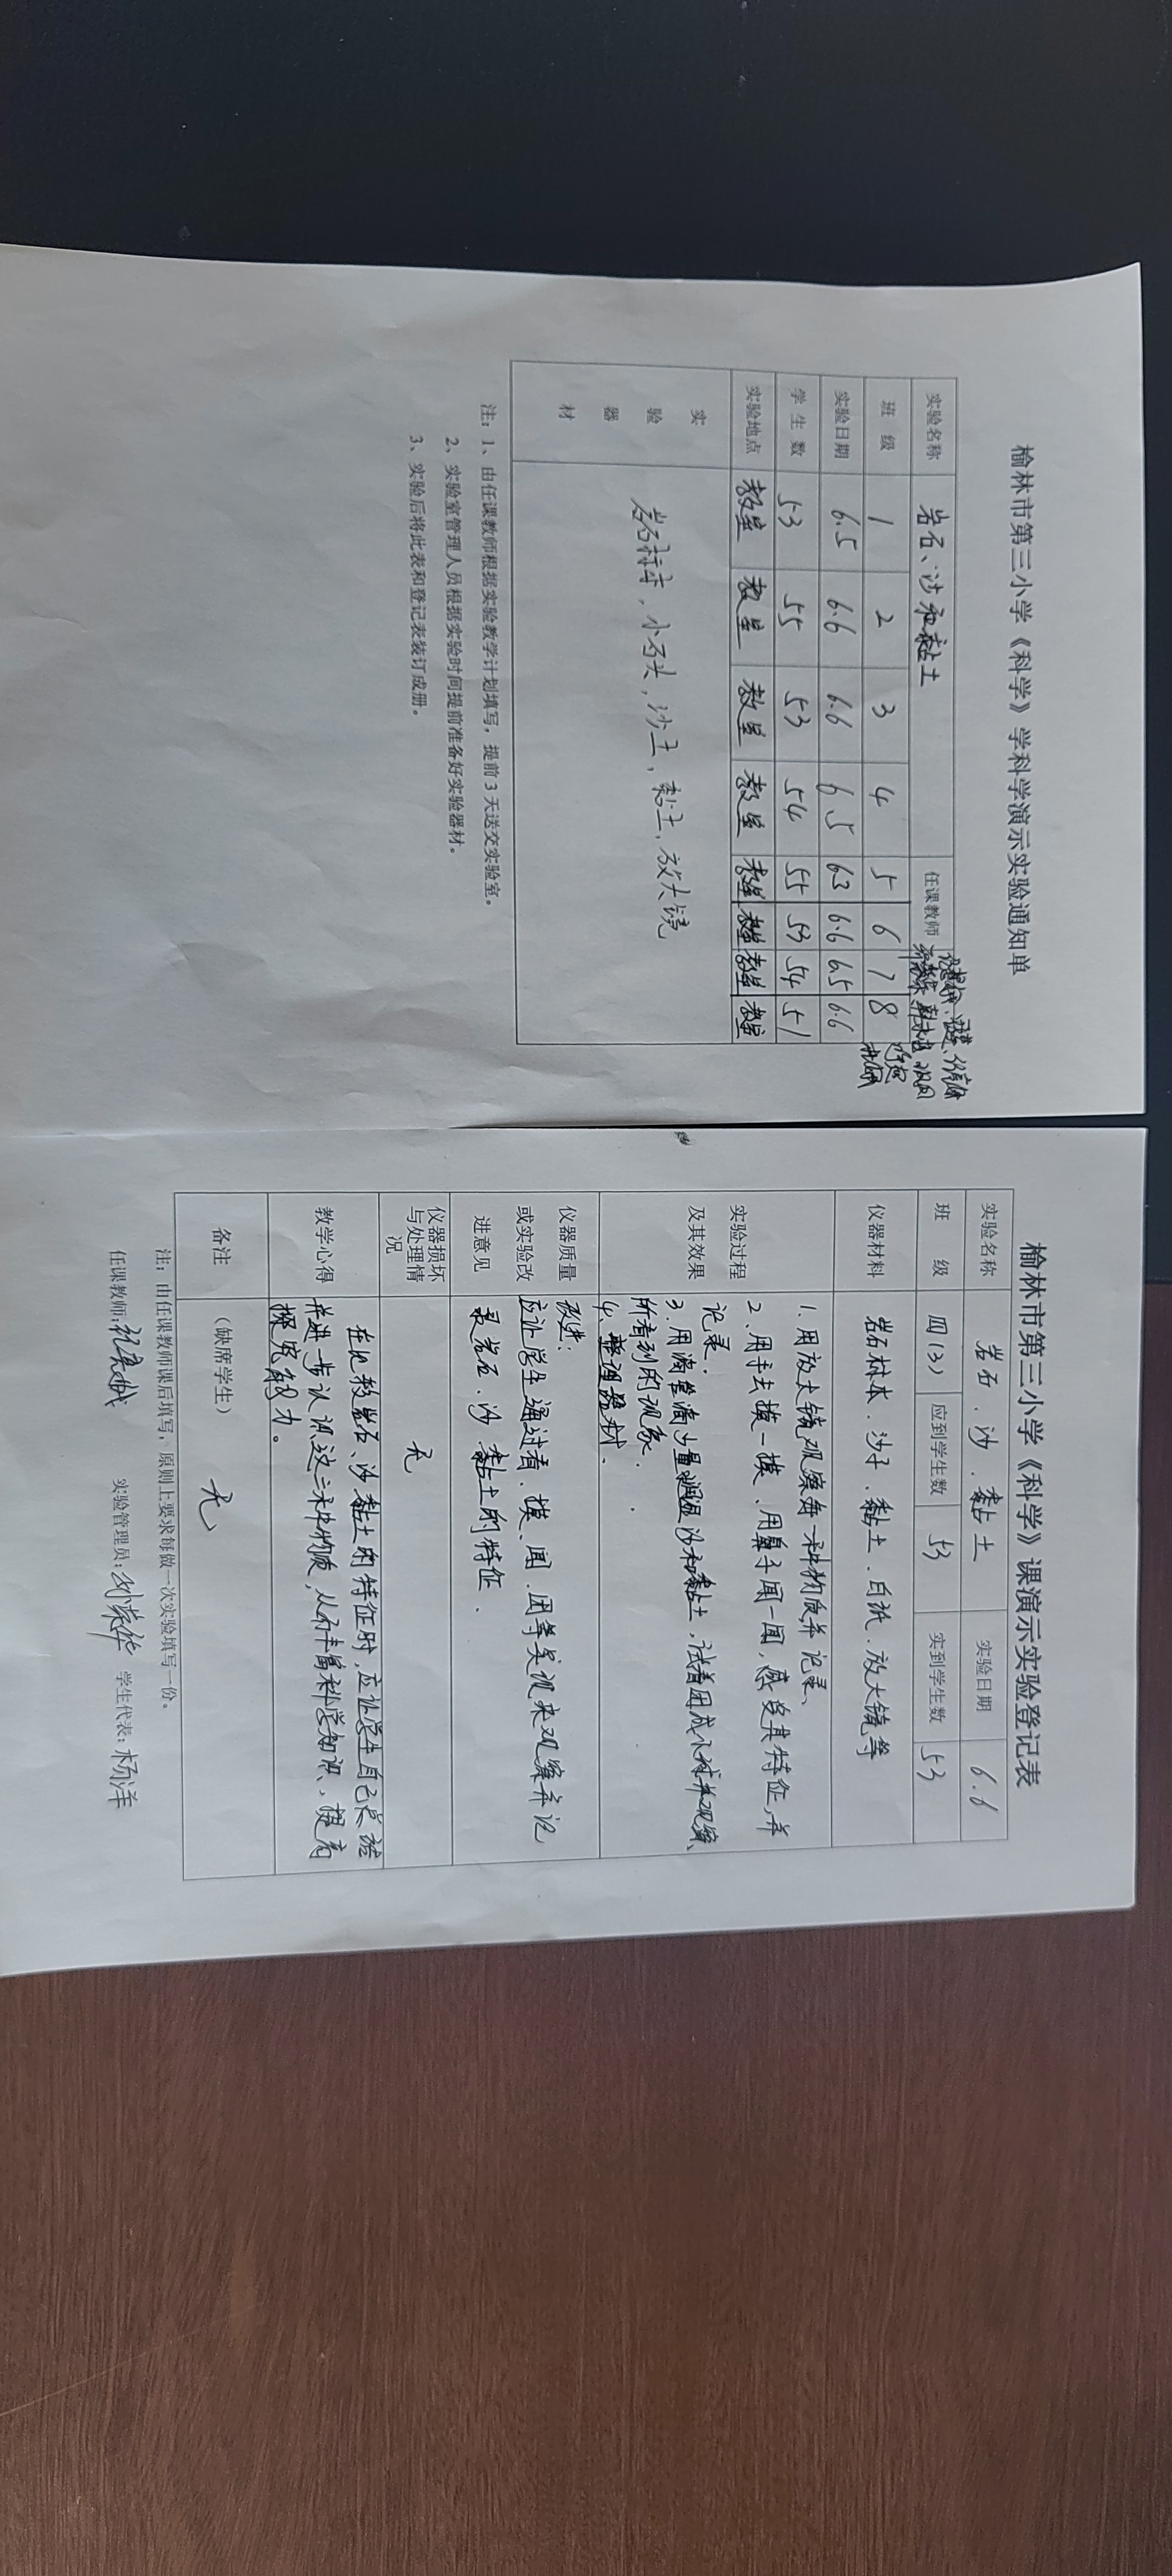 榆林市第三小学《科学》学科学演示实验通知单
实验名称 岩石、沙和黏土 任课教师
班 级 1 2 3 4 5 6 7 8
实验日期 6.5 6.6 6.6 6.5 6.3 6.6 6.5 6.6
学 生 数 53 55 53 54 55 53 54 51
实验地点 教室 教室 教室 教室 教室 教室 教室 教室
实验器材 岩石标本，小石头，沙土，黏土，放大镜
注：1、由任课教师根据实验教学计划填写，提前 3 天送交实验室。
2、实验室管理人员根据实验时间提前准备好实验器材。
3、实验后将此表和登记表装订成册。
榆林市第三小学《科学》课演示实验登记表
实验名称 岩石、沙、黏土 实验日期 6.6
班 级 四(3) 应到学生数 53 实到学生数 53
仪器材料 岩石标本、沙子、黏土、白纸、放大镜等
实验过程及其效果
1.用放大镜观察每一种物质并记录、
2、用手去摸一摸、用鼻子闻一闻，感受其特征，并
记录.
3.用滴管滴少量水沙和黏土，试着团成小球并观察
所看到的现象.
4、整理器材.
仪器质量或实验改进意见
改进:
应让学生通过看、摸、闻、团等实验来观察并记
录岩石、沙、黏土的特征.
仪器损坏与处理情况 无
教学心得
在比较岩石、沙黏土的特征时，应让学生自己
并进一步认识这三种物质，从而丰富科学知识、提高
探究能力。
备注 （缺席学生） 无
注：由任课教师课后填写，原则上要求每做一次实验填写一份。
任课教师： 实验管理员：刘荣华 学生代表：杨洋